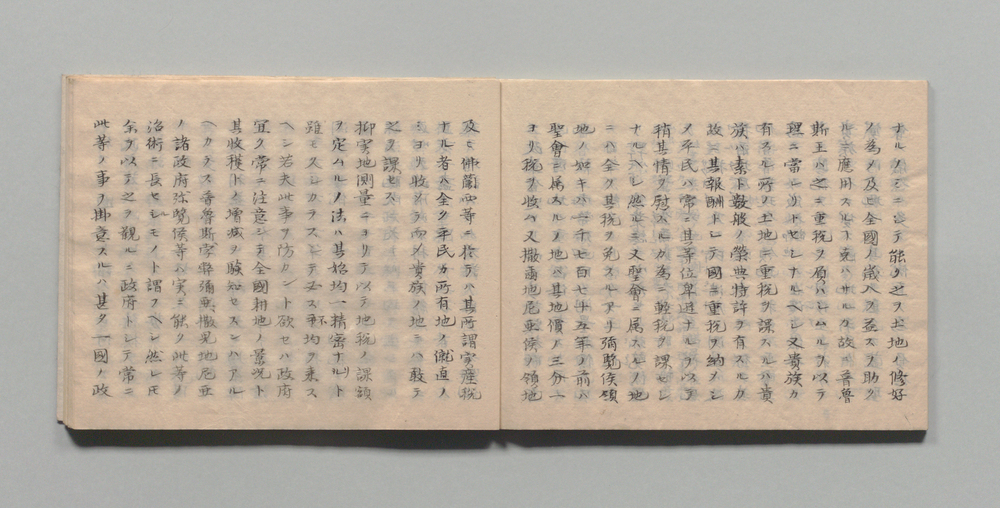 ナルノミニシテ能ク之ヲ土地ノ修好
ノ為メ及ヒ全國ノ歳入ヲ益スヲ助ク
ルニ應用スルコト克ハサルカ故ニ普魯
斯王ハ之ニ重税ヲ屓ハシムルヲ以テ
理ニ當レリトセシナルヘシ又貴族カ
有スル所ノ土地ニ重税ヲ課スルハ貴
族ハ素ト数般ノ榮典特許ヲ有スルカ
故ニ其報酬トシテ國ニ重税ヲ納メシ
メ平民ハ常ニ其等位卑近ナルヲ以テ
稍其情ヲ慰スルカ為ニ軽税ヲ課セシ
ナルヘシ然ルニ又聖會ニ属スルノ地
ニハ全ク其税ヲ免スルアリ彌侯領
地ノ如キハ一千七百七十五年ノ前ハ
聖會ニ属スルノ地ハ基地價ノ三分一
ヨリ税ヲ收ハ又撒爾地尼亜侯ノ領地
及ヒ佛蘭西等ニ於テハ其所謂実産税
ナル者ハ全ク平民カ所有地ノ價直ノ
ミヨリ收メテ而メ貴族ノ地ニハ敢テ
之ヲ課セス
抑実地測量ニヨリテ以テ地税ノ課額
ヲ定ムルノ法ハ其始均一精密ナリト
雖モ久シカラスシテ又不平均ヲ来ス
ヘシ若夫此事ヲ防カント欲セハ政府
宜ク常ニ注意シテ全國耕地ノ景况ト
其收穫トノ増减ヲ験知セスンハアル
ヘカラス普魯斯彌亜撒兒地尼亜
ノ諸政府弥侯等ハ実ニ能ク此等ノ
治術ニ長セルモノト謂フヘシ然レ𪜈
余ヲ以テ之ヲ観ルニ政府トシテ常ニ
此等ノ事ヲ掛意スルハ甚タ一國ノ政